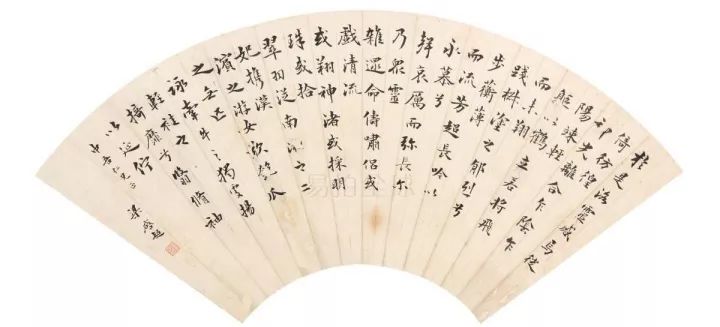 於是洛靈感焉徙
倚彷徨
神光離合乍陰乍
陽竦輕
軀以鶴立若將飛
而未翔
踐椒塗之郁烈兮
步蘅薄
而流芳超長吟以
永慕兮
聲哀厲而彌長爾
乃眾靈
雜遝命儔嘯侶或
戲清流
或翔神渚或採明
珠或拾
翠羽從南湘之二
妃攜漢
濱之游女歎匏瓜
之無匹
詠牽牛之獨處揚
輕袿之猗
靡兮翳脩袖
以延佇
仁兄正 梁啟超